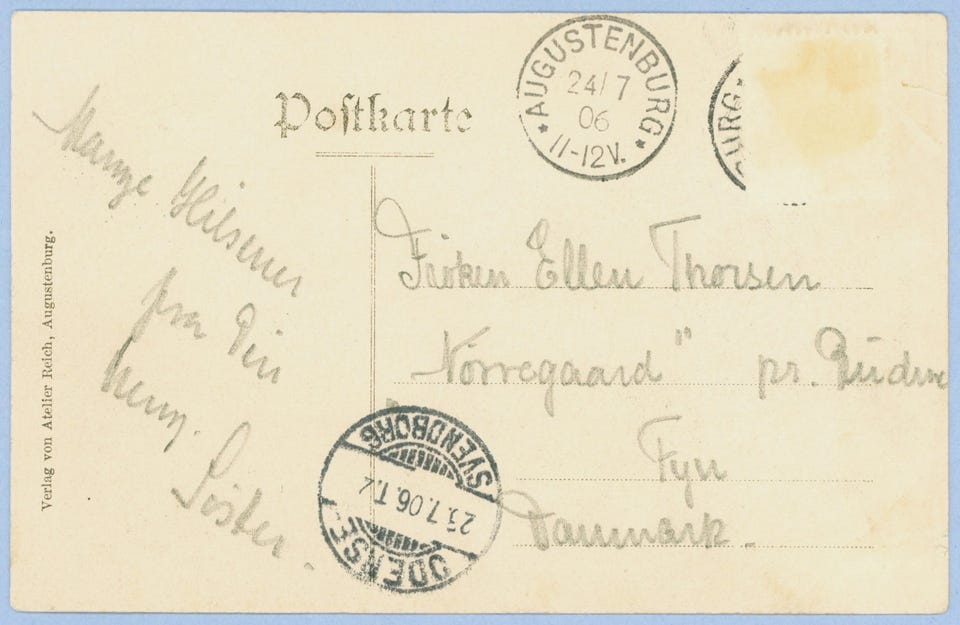 Postkarte
AUGUSTENBURG
24/7
06
11-12V.
BURG
Mange Hilsener
fra Din
Søster.
Frøken Ellen Thorsen
Nörregaard" pr.
Fyn
Danmark.
ODENSE
25.7.06.T.2
SVENDBORG
Verlag von Atelier Reich, Augustenburg.